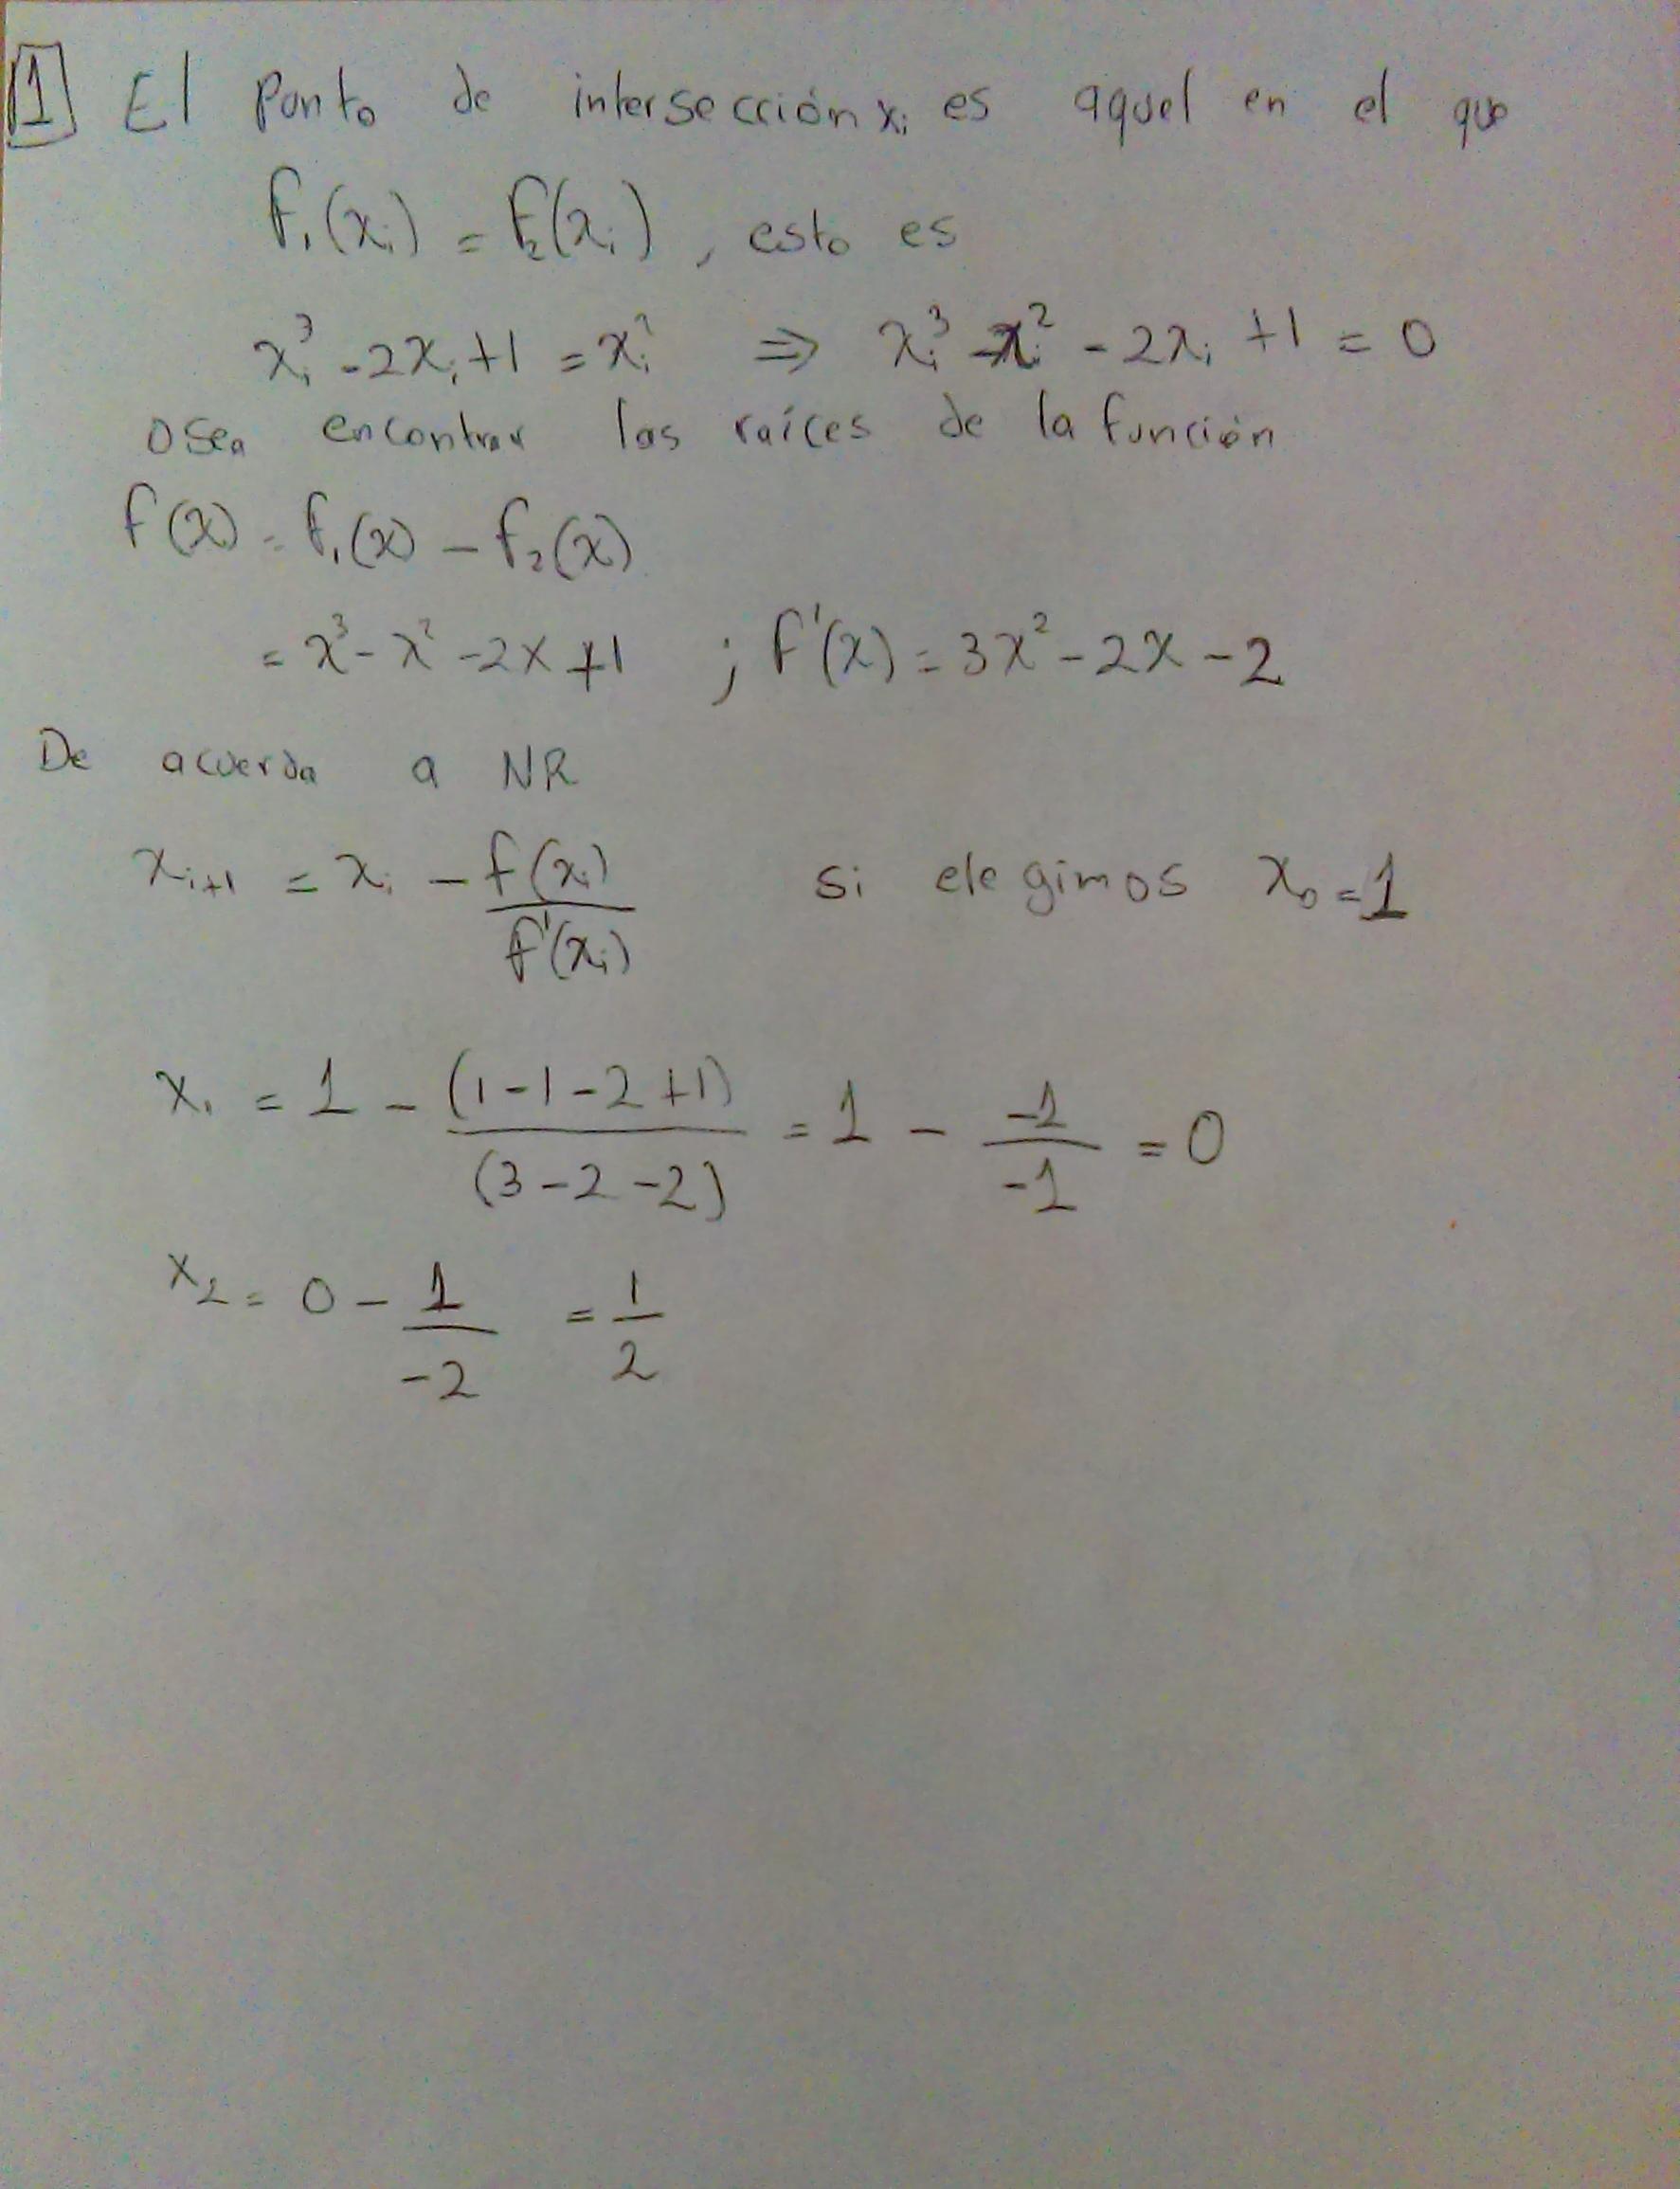 1 El punto de intersección xᵢ es aquel en el que
f₁(xᵢ) = f₂(xᵢ), esto es
xᵢ³ - 2xᵢ + 1 = xᵢ² ⇒ xᵢ³ - xᵢ² - 2xᵢ + 1 = 0
osea encontrar las raíces de la función
f(x) = f₁(x) - f₂(x)
= x³ - x² - 2x + 1 ; f'(x) = 3x² - 2x - 2
De acuerdo a NR
xᵢ₊₁ = xᵢ - f(xᵢ)/f'(xᵢ) si elegimos x₀ = 1
x₁ = 1 - (1-1-2+1)/(3-2-2) = 1 - -1/-1 = 0
x₂ = 0 - 1/-2 = 1/2